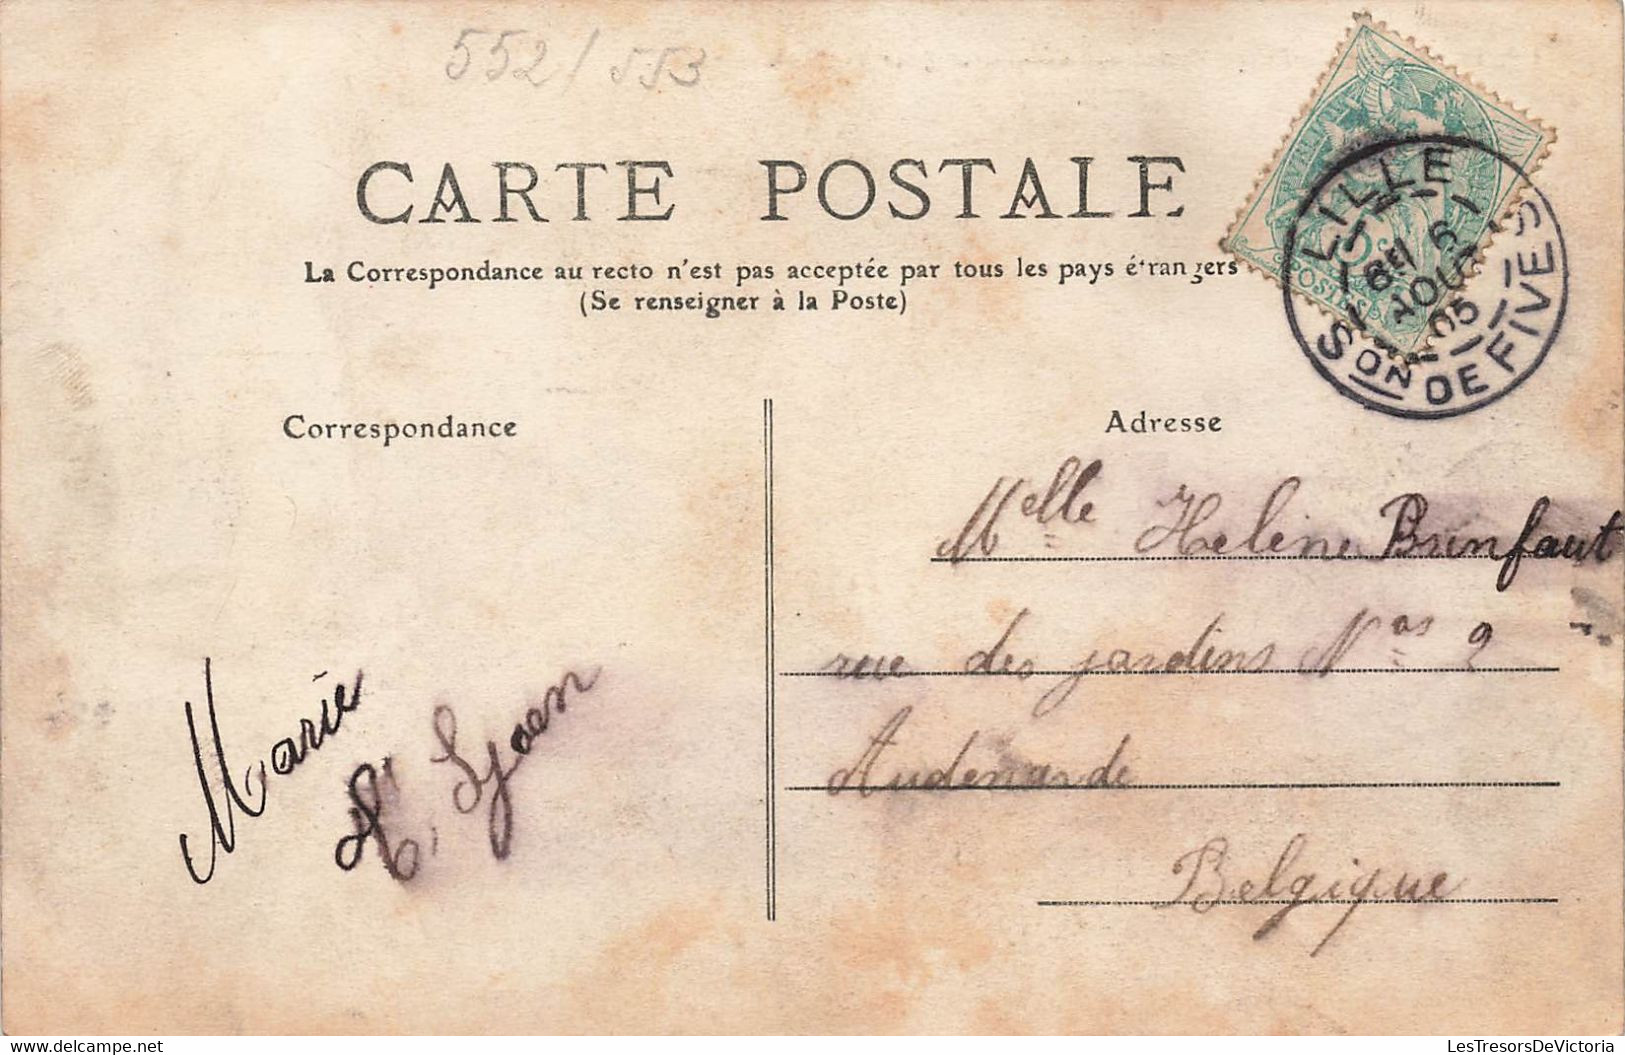 552/553
CARTE POSTALE
La Correspondance au recto n'est pas acceptée par tous les pays étrangers
(Se renseigner à la Poste)
LILLE
6
AOUT
05
SON DE FIVES
POSTES
Correspondance
Adresse
Melle Helène Brunfaut
rue des jardins Nos 2
Audenarde
Belgique
Marie
LesTresorsDeVictoria
www.delcampe.net